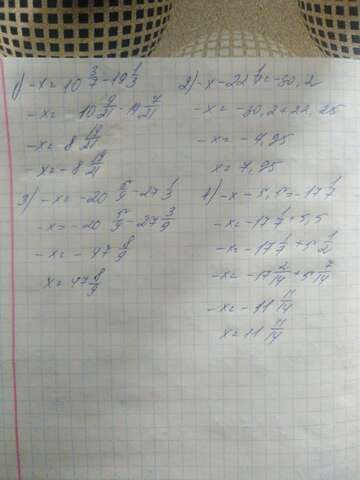 1) -x = 10 3/7 - 19 1/3
-x = 10 9/21 - 19 7/21
-x = 8 19/21
-x = -8 19/21
2) -x - 22 1/4 = -30,2
-x = -30,2 + 22,25
-x = -7,95
x = 7,95
3) -x = -20 5/9 - 27 1/3
-x = -20 5/9 - 27 3/9
-x = -47 8/9
x = 47 8/9
4) -x - 5,5 = -17 1/7
-x = -17 1/7 + 5,5
-x = -17 1/7 + 5 1/2
-x = -17 2/14 + 5 7/14
-x = -11 11/14
x = 11 11/14